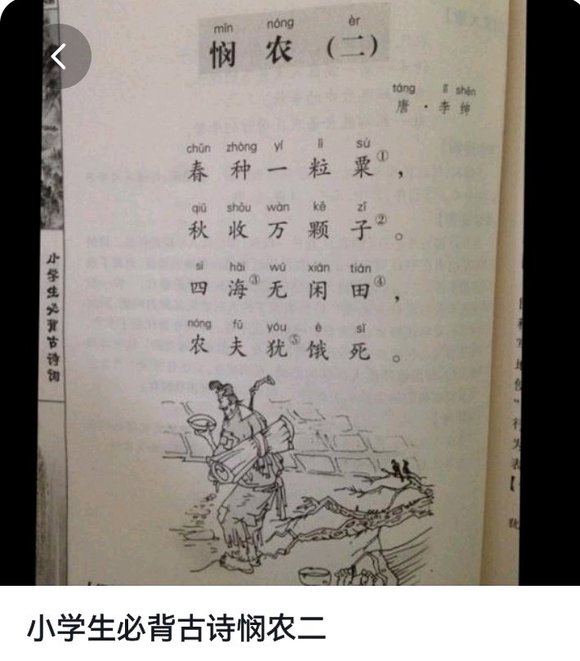 mǐn nóng èr
悯 农 （二）
táng lǐ shēn
唐 · 李 绅
chūn zhòng yí lì sù
春 种 一 粒 粟①，
qiū shōu wàn kē zǐ
秋 收 万 颗 子②。
sì hǎi wú xián tián
四 海③ 无 闲 田④，
nóng fū yóu è sǐ
农 夫 犹⑤ 饿 死 。
小学生必背古诗词
小学生必背古诗悯农二